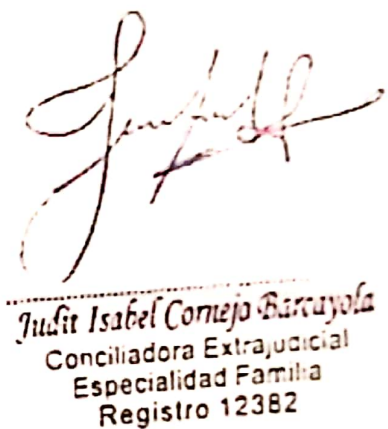 Judit Isabel Cornejo Barcayola
Conciliadora Extrajudicial
Especialidad Familia
Registro 12382